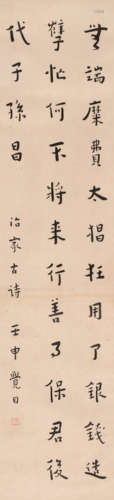 無端糜費太猖狂用了銀錢造
孽忙何不將来行善事保君後
代子孫昌
治家古詩 壬申覺日